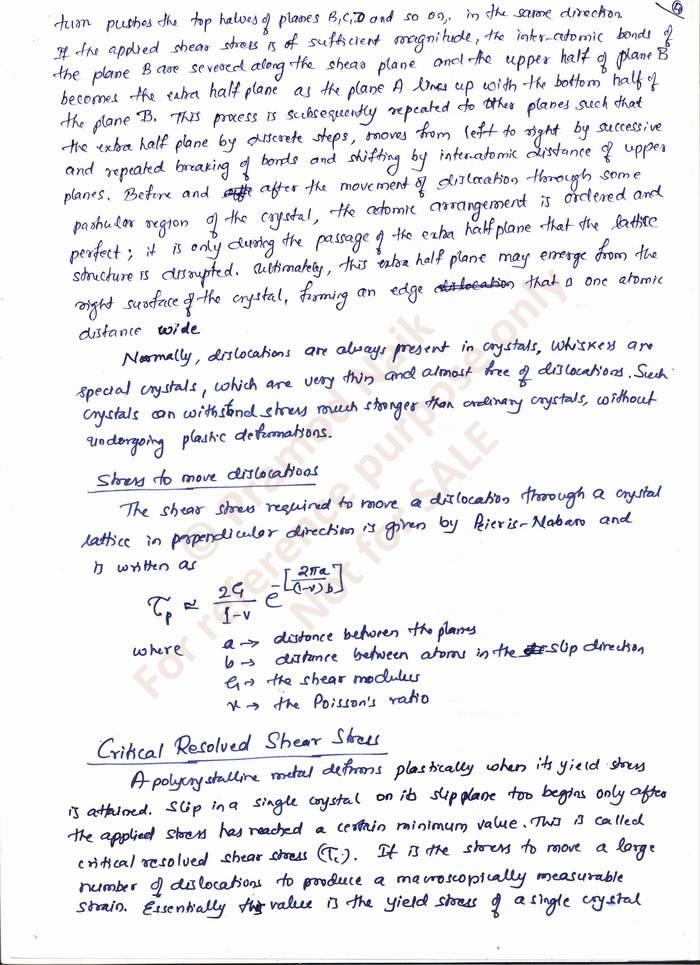 turn pushes the top halves of planes B, C, D and so on,. in the same direction.
If the applied shear stress is of sufficient magnitude, the inter-atomic bonds of
the plane B are severed along the shear plane and the upper half of plane B
becomes the extra half plane as the plane A lines up with the bottom half of
the plane B. This process is subsequently repeated to other planes such that
the extra half plane by discrete steps, moves from left to right by successive
and repeated breaking of bonds and shifting by interatomic distance of upper
planes. Before and after the movement of dislocation through some
particular region of the crystal, the atomic arrangement is ordered and
perfect; it is only during the passage of the extra half plane that the lattice
structure is disrupted. Ultimately, this extra half plane may emerge from the
right surface of the crystal, forming an edge dislocation that is one atomic
distance wide
Normally, dislocations are always present in crystals, whiskers are
special crystals, which are very thin and almost free of dislocations. Such
crystals can withstand stress much stronger than ordinary crystals, without
undergoing plastic deformations.
Stress to move dislocations
The shear stress required to move a dislocation through a crystal
lattice in perpendicular direction is given by Pieris-Nabaro and
is written as
τp ≈ 2G/(1-ν) e^-[2πa/((1-ν)b)]
where a → distance between the planes
b → distance between atoms in the slip direction
G → the shear modulus
ν → the Poisson's ratio
Critical Resolved Shear Stress
A polycrystalline metal deforms plastically when its yield stress
is attained. Slip in a single crystal on its slip plane too begins only after
the applied stress has reached a certain minimum value. This is called
critical resolved shear stress (τc). It is the stress to move a large
number of dislocations to produce a macroscopically measurable
strain. Essentially this value is the yield stress of a single crystal
© Pramod Naik
For reference purpose only
Not for SALE